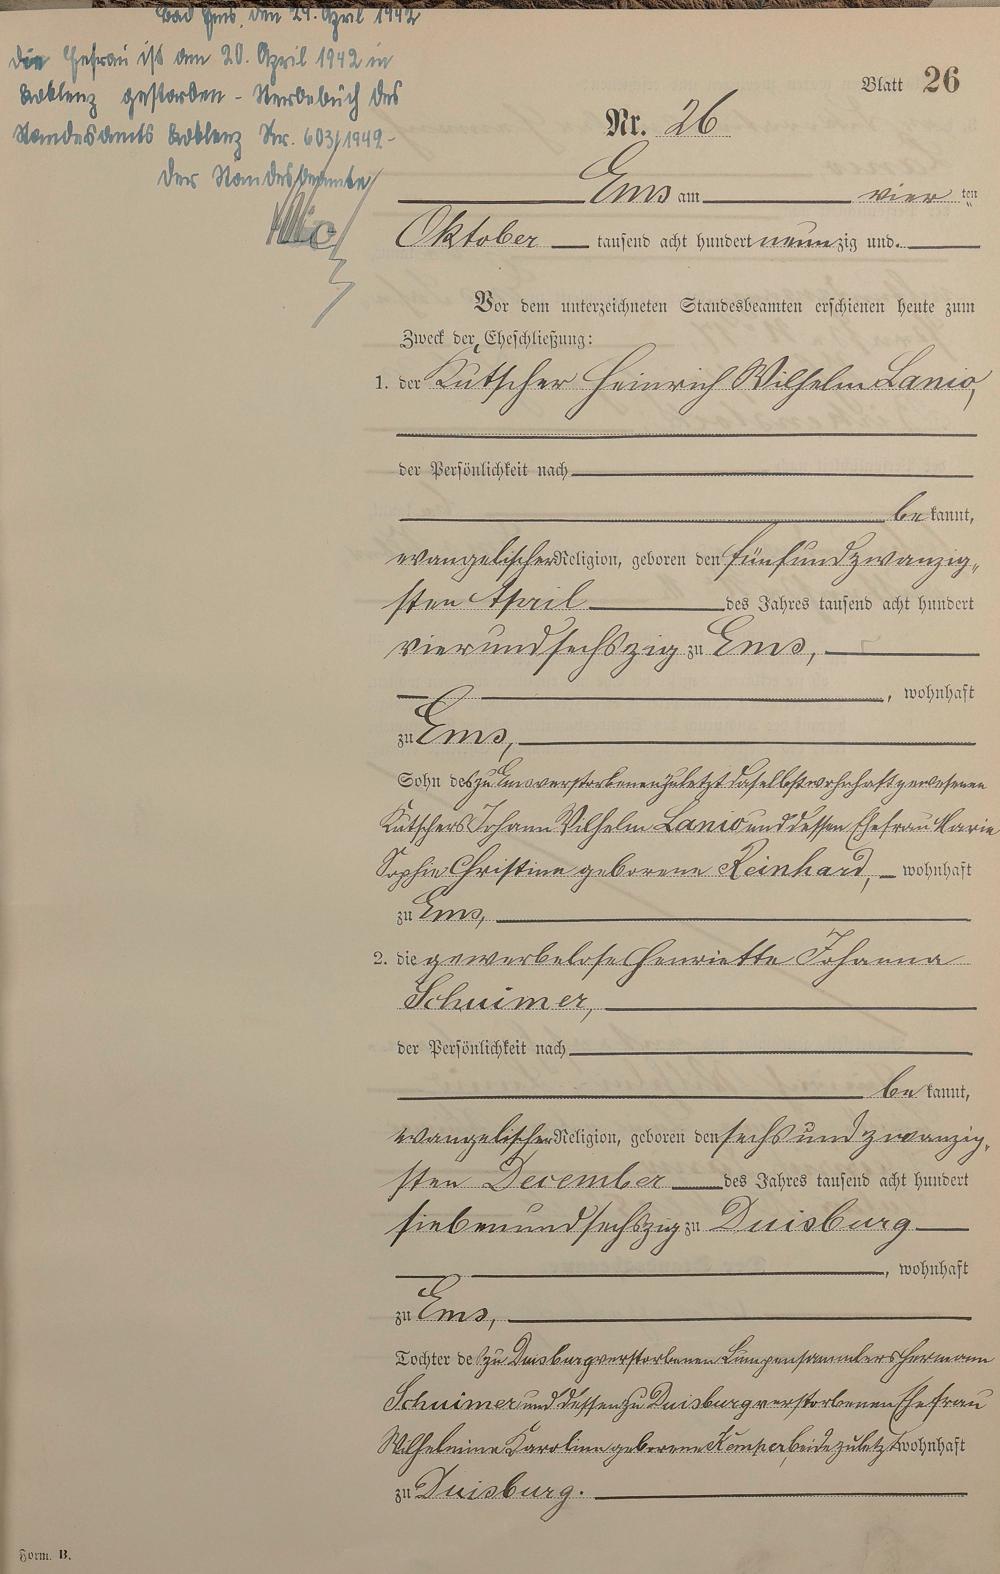 Bad Ems, den 24. April 1942
Die Ehefrau ist am 20. April 1942 in
Koblenz gestorben - Sterbebuch des
Standesamts Koblenz Nr. 603/1942-
Der Standesbeamte
Blatt 26
Nr. 26
Ems am vier ten
Oktober tausend acht hundert neunzig und.
Vor dem unterzeichneten Standesbeamten erschienen heute zum
Zweck der Eheschließung:
1. der Kutscher Heinrich Wilhelm Lanio,
der Persönlichkeit nach
be kannt,
evangelischer Religion, geboren den fünfundzwanzig-
sten April des Jahres tausend acht hundert
vierundsechszig zu Ems,
, wohnhaft
zu Ems,
Sohn des zu Ems verstorbenen zuletzt daselbst wohnhaft gewesenen
Kutschers Johann Wilhelm Lanio und dessen Ehefrau Marie
Sophie Christine geborene Reinhard, wohnhaft
zu Ems,
2. die gewerbelose Henriette Johanna
Schuimer,
der Persönlichkeit nach
be kannt,
evangelischer Religion, geboren den sechsundzwanzig-
sten December des Jahres tausend acht hundert
siebenundsechszig zu Duisburg
, wohnhaft
zu Ems,
Tochter des zu Duisburg verstorbenen Lumpensammlers Hermann
Schuimer und dessen zu Duisburg verstorbenen Ehefrau
Wilhelmine Karoline geborene Kemper, beide zuletzt wohnhaft
zu Duisburg.
Form. B.